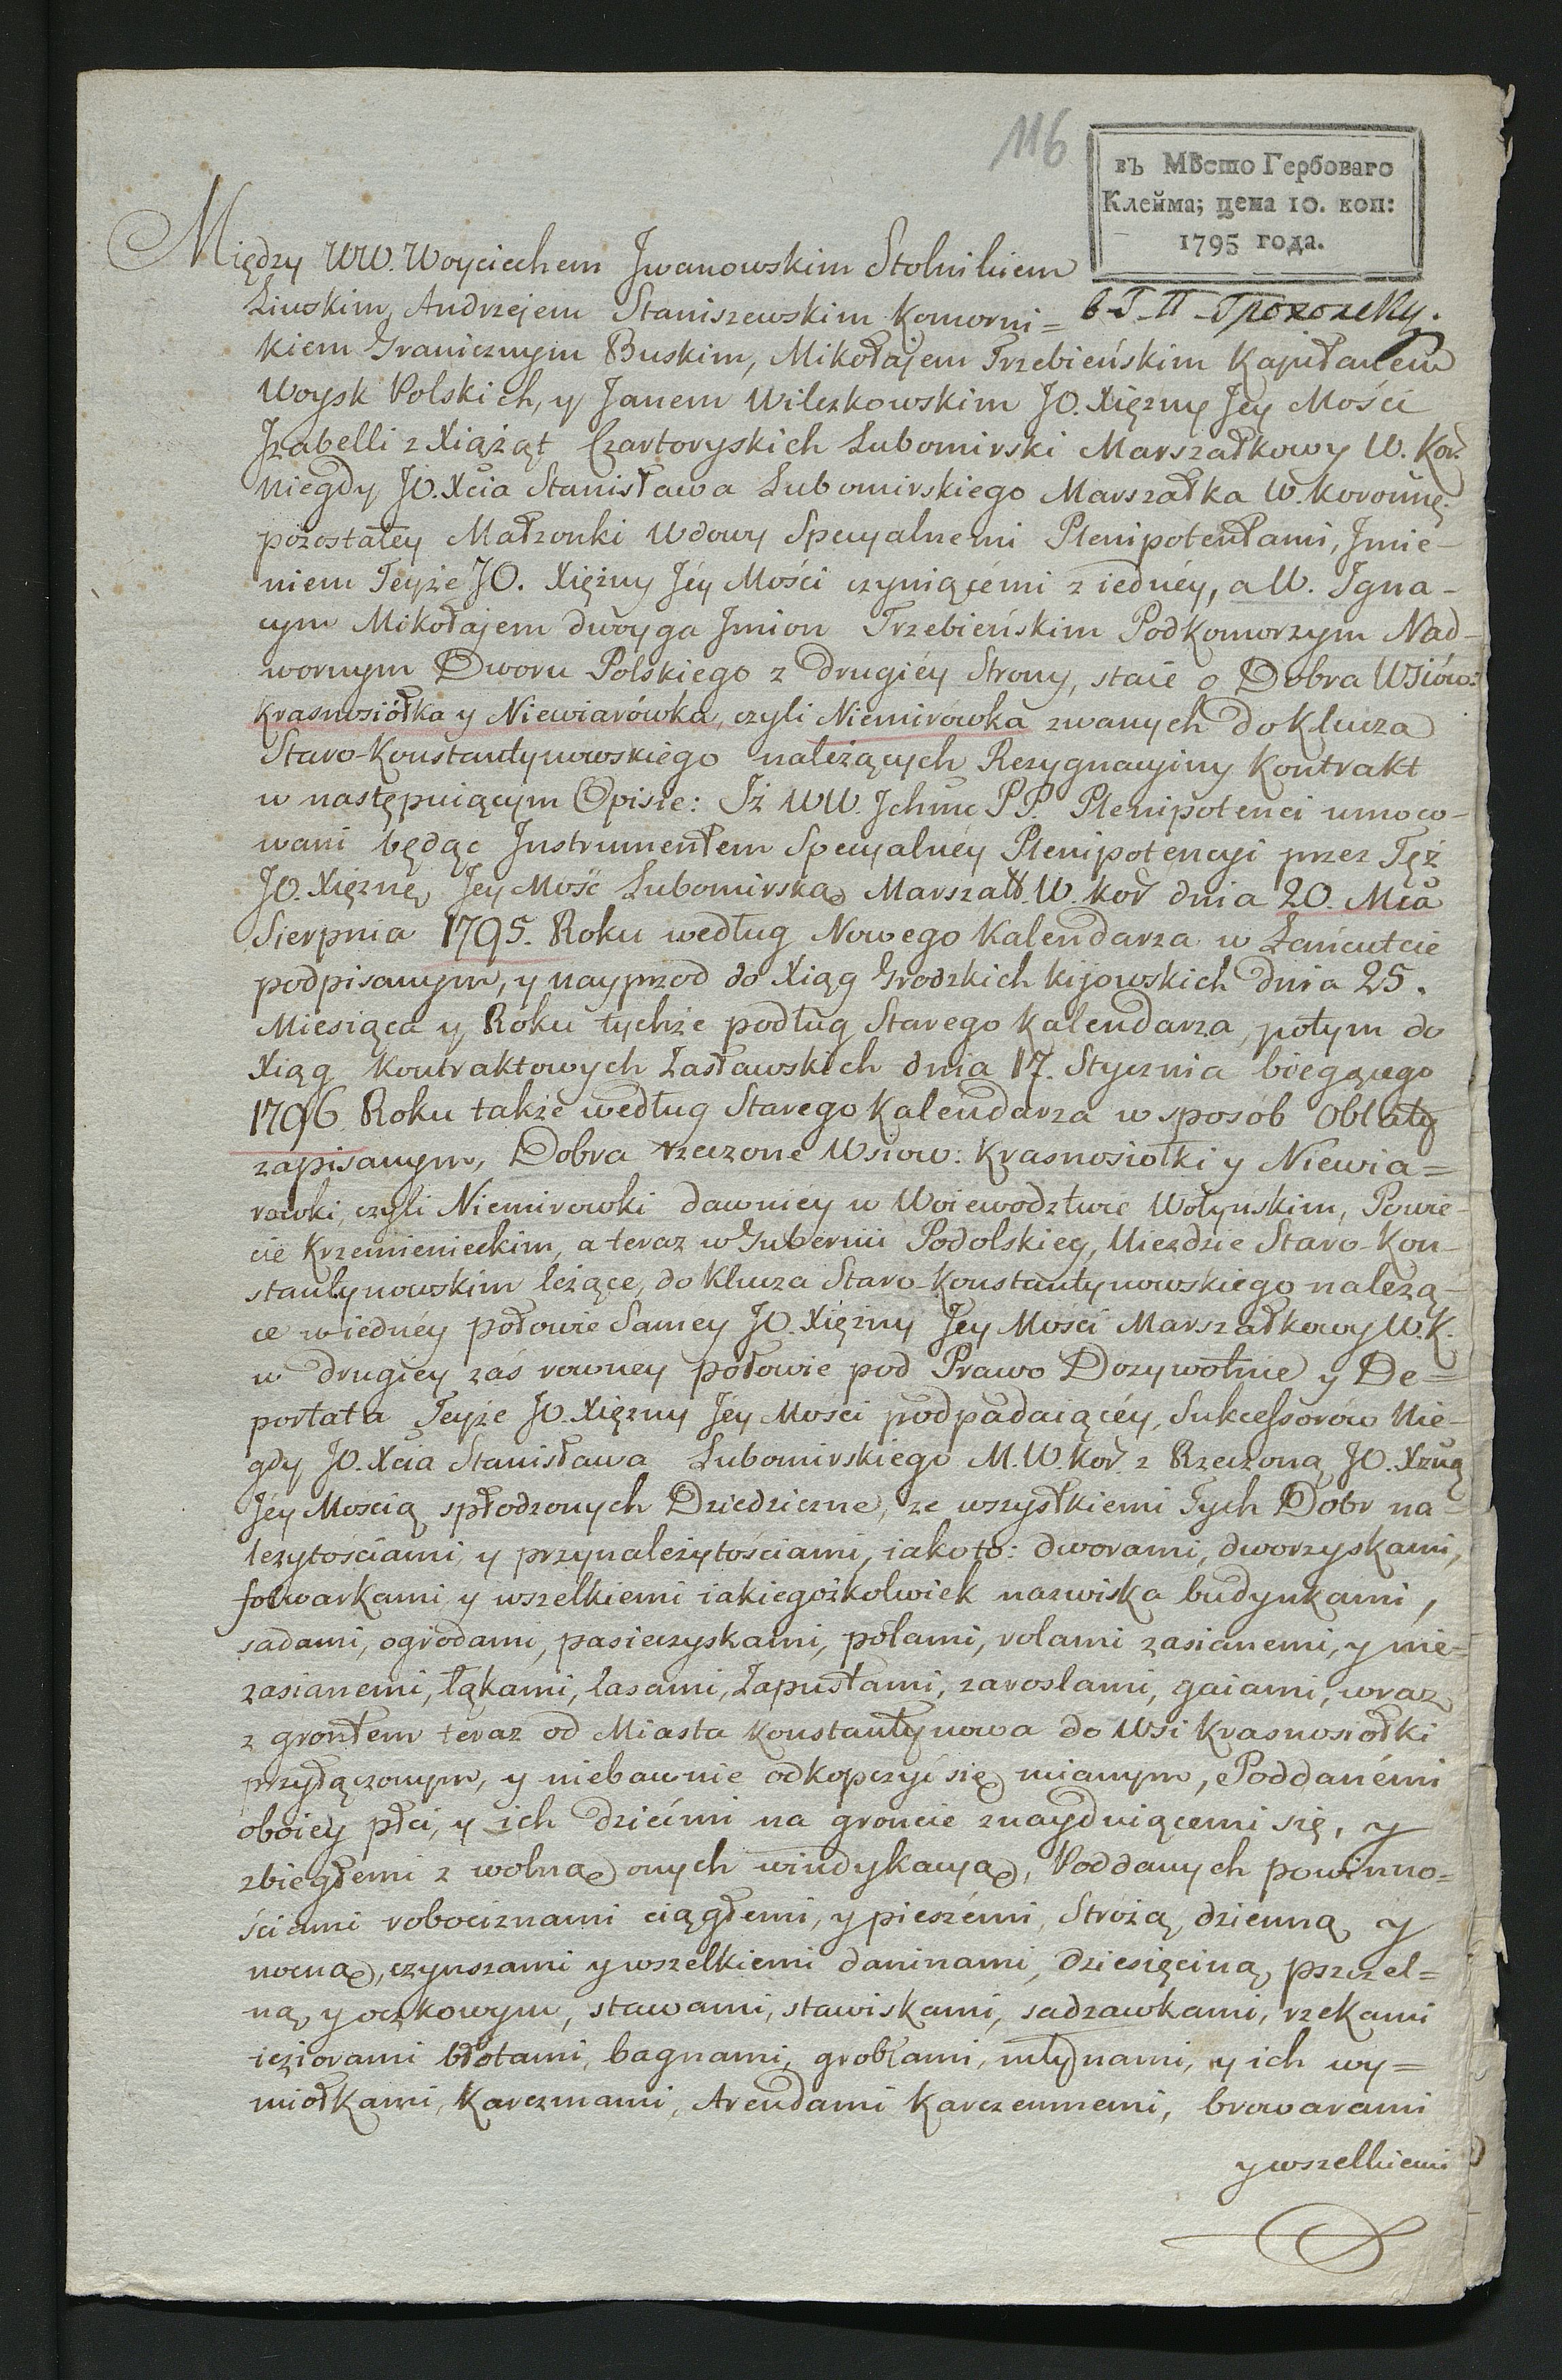 116
въ Мѣсто Гербоваго
Клейма; цена 10. коп:
1795 года.
Między WW. Woyciechem Jwanowskim Stolnikiem
Liwskim, Andrzejem Staniszewskim Komorni=
kiem Granicznym Buskim, Mikołajem Trzebieńskim Kapitanem
Woysk Polskich, y Janem Wilczkowskim JO. Xiężny Jey Mości
Jzabelli z Xiążąt Czartoryskich Lubomirski Marszałkowy W. Kor.
niegdy JO. Xcia Stanisława Lubomirskiego Marszałka W. Koronne.
pozostałey Małzonki Wdowy Specyalnemi Plenipotentami, Jmie-
niem Teyże JO. Xiężny Jéy Mości czyniącémi z iednéy, a W. Igna-
cym Mikołajem dwoyga Jmion Trzebieńskim Podkomorzym Nad-
wornym Dworu Polskiego z drugiéy Strony, staie o Dobra Wsiów:
Krasnosiółka y Niewiarówka, czyli Niemirowka zwanych do Klucza
Staro-Konstantynowskiego należących Rezygnacyiny Kontrakt
w następuiącym Opisie: Iż WW. Jchmć PP. Plenipotenci umoco-
wani będąc Jnstrumentem Specyalnéy Plenipotencyi przez Tęż
JO. Xiężnę Jey Mość Lubomirską Marszałk. W. Kor dnia 20. Mca
Sierpnia 1795. Roku według Nowego Kalendarza w Łańcutcie
podpisanym, y nayprzod do Xiąg Grodzkich Kijowskich dnia 25.
Miesiąca y Roku tychże podług Starego Kalendarza, potym do
Xiąg Kontraktowych Zasławskich dnia 17. Stycznia bieżącego
1796 Roku także według Starego Kalendarza w sposób Oblaty
zapisanym, Dobra rzeczone Wsiow: Krasnosiołki y Niewia=
rowki, czyli Niemirowki dawniéy w Woiewodztwie Wołynskim, Powie-
cie Krzemienieckim, a teraz w Gubernii Podolskiey, Uiezdzie Staro-Kon-
stantynowskim leżące, do Klucza Staro-Konstantynowskiego należą-
ce w iednéy połowie Samey JO. Xiężny Jey Mości Marszałkowy W. K.
w drugiéy zaś rowney połowie pod Prawo Dozywotnie y De=
portata Teyże JO. Xiężny Jéy Mości podpadaiącéy, Sukcessorów Nie-
gdy JO. Xcia Stanisława Lubomirskiego M. W. Kor. z Rzeczoną JO. Xżną
Jéy Moscią spłodzonych Dziedziczne, ze wszystkiemi Tych Dobr na-
leżytościami y przynależytościami, iako to: dworami, dworzyskami,
folwarkami y wszelkiemi iakiegożkolwiek nazwiska budynkami,
sadami, ogrodami, pasieczyskami, polami, rolami zasianemi, y nie-
zasianemi, łąkami, lasami, Zapustami, zaroslami, gaiami, wraz
z grontem teraz od Miasta Konstantynowa do Wsi Krasnosiołki
przyłączonym, y niebawnie odkopczyć się mianym, Poddanémi
oboiey płci, y ich dziećmi na groncie znayduiącemi się, y
zbiegłemi z wolną onych windykacyą, Poddanych powinno=
ściami robociznami ciągłemi, y pieszémi, Strożą dzienną y
nocną, czynszami y wszelkiemi daninami, dziesięciną pszczel=
ną y oczkowym, stawami, stawiskami, sadzawkami, rzekami
ieziorami błotami, bagnami, groblami, młynami, y ich wy=
miołkami, Karczmami, Arendami Karczemnemi, browarami
y wszelkiemi